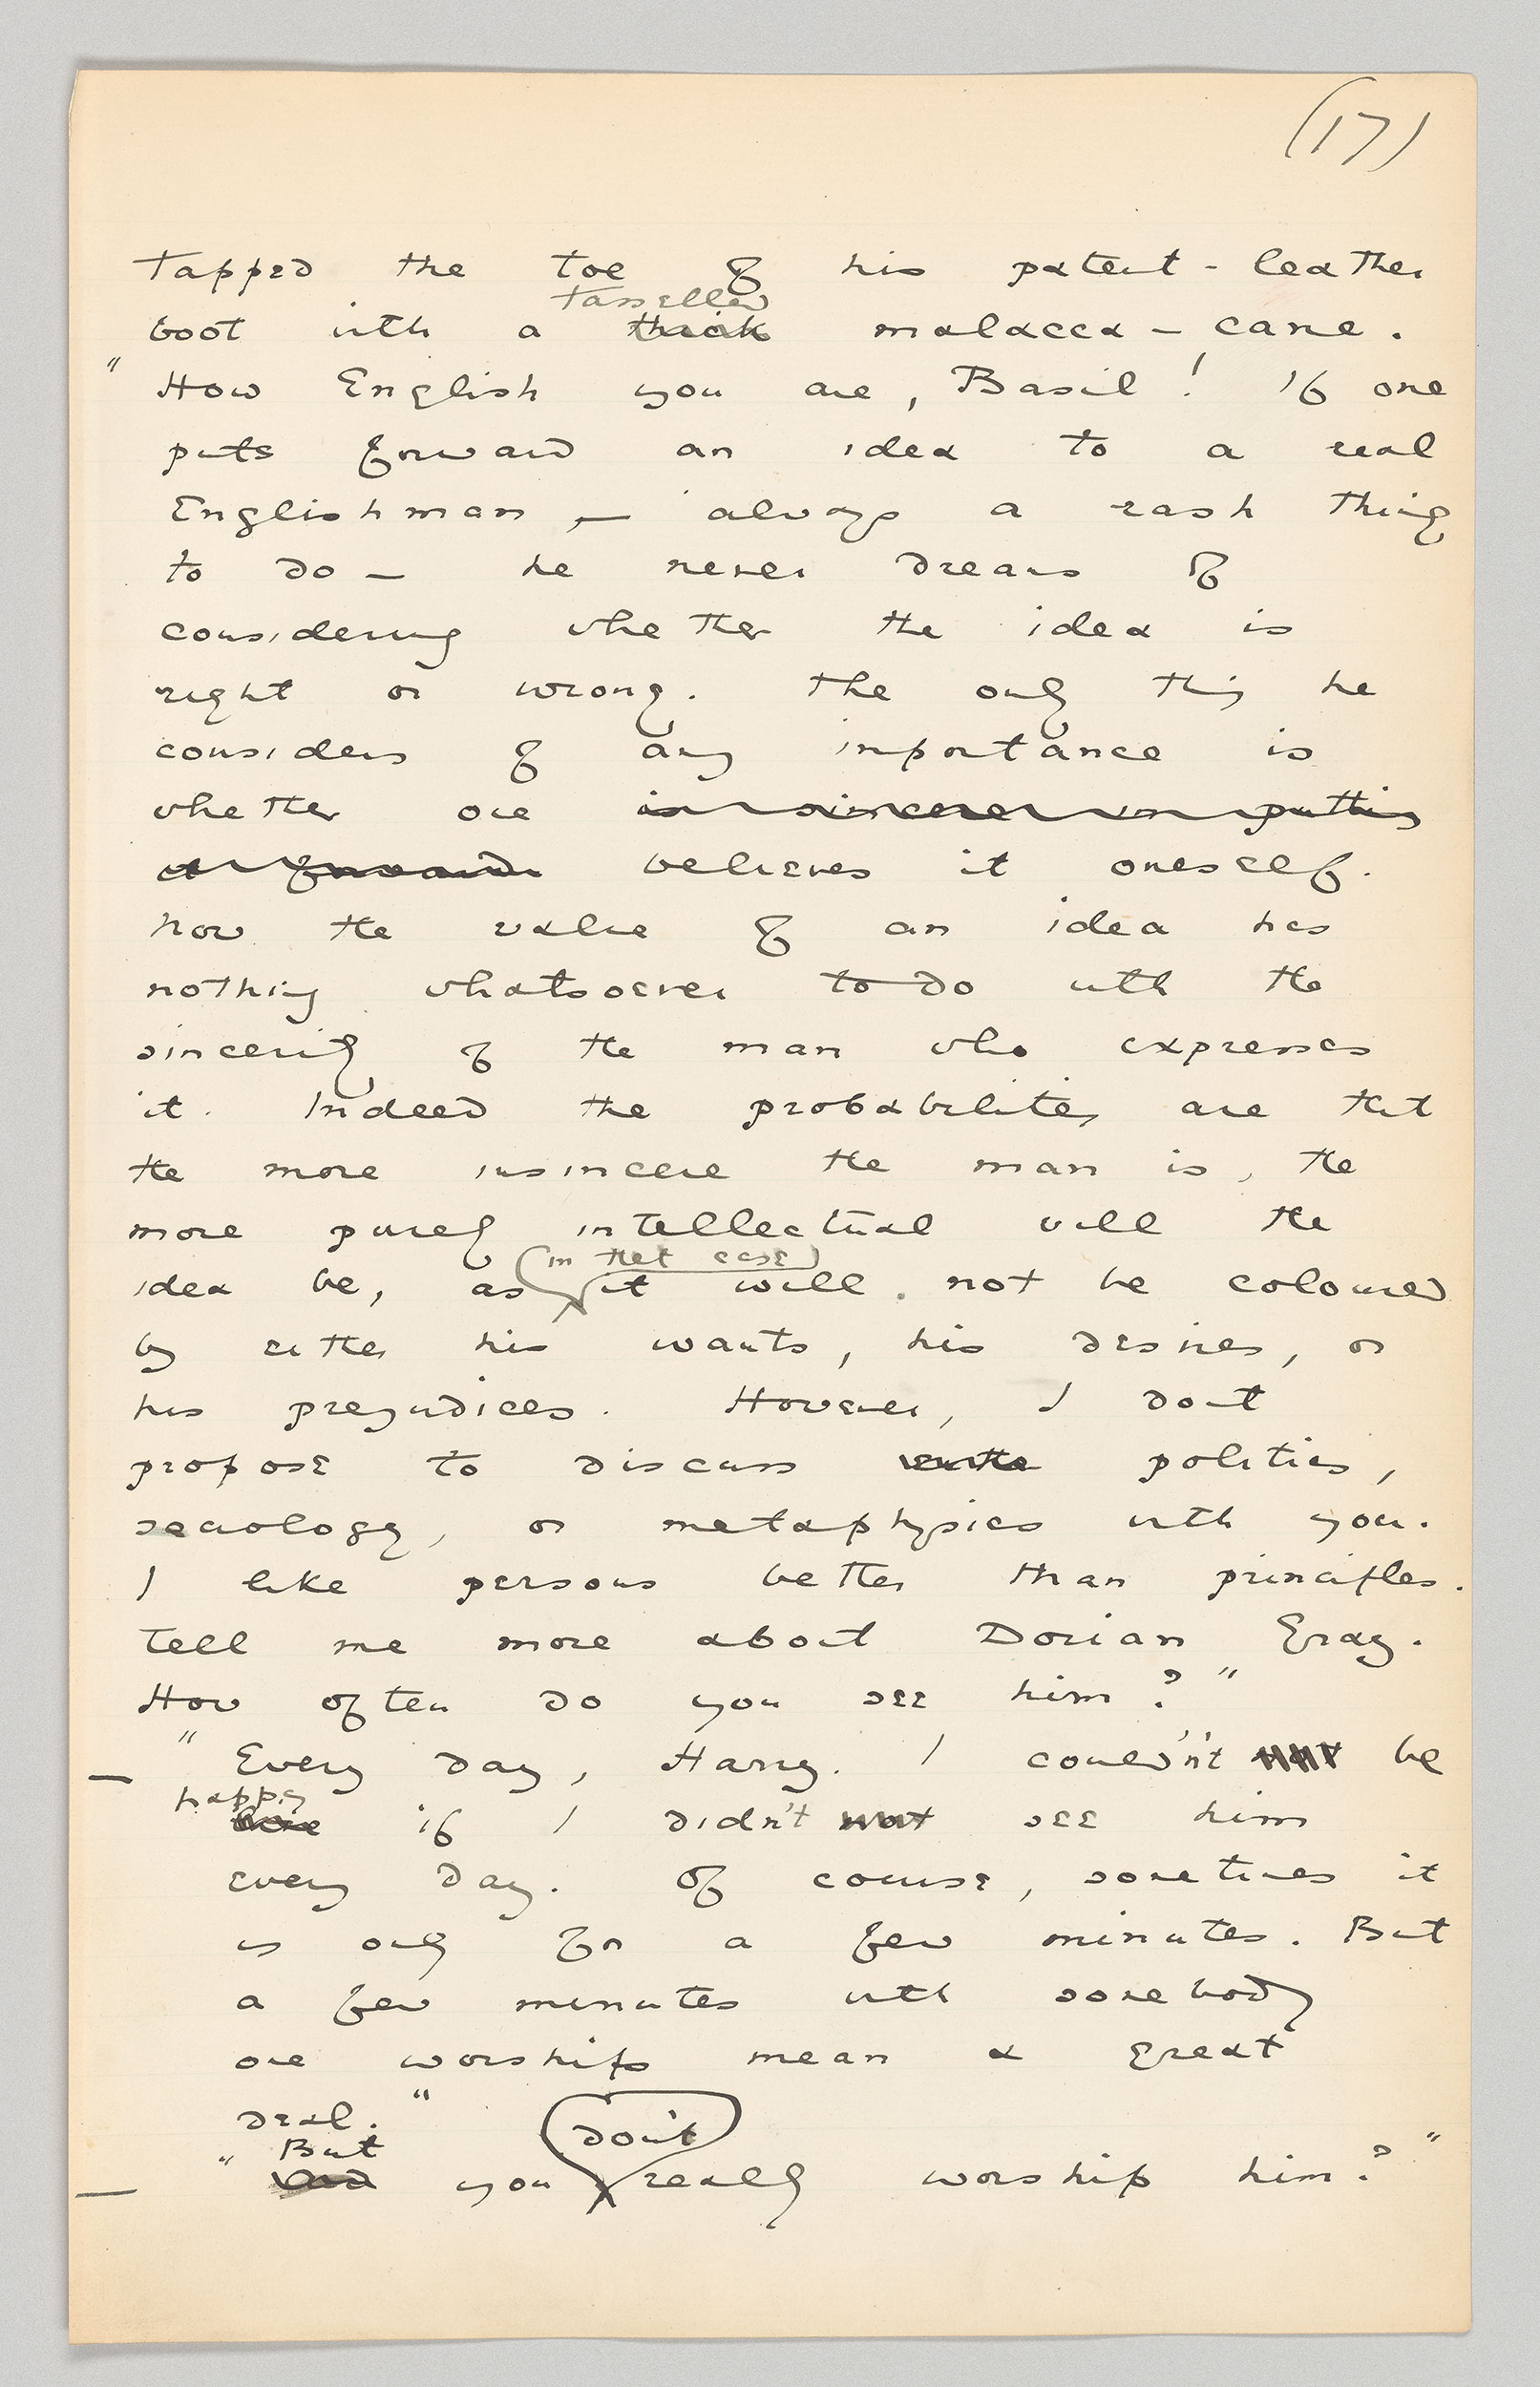 (17)
tapped the toe of his patent-leather
tasselled
boot with a thick malacca-cane.
"How English you are, Basil! If one
puts forward an idea to a real
Englishman, — always a rash thing
to do — he never dreams of
considering whether the idea is
right or wrong. The only thing he
considers of any importance is
whether one is sincere in putting
it forward believes it oneself.
Now the value of an idea has
nothing whatsoever to do with the
sincerity of the man who expresses
it. Indeed the probabilities are that
the more insincere the man is, the
more purely intellectual will the
(in that case)
idea be, as it will not be coloured
by either his wants, his desires, or
his prejudices. However, I dont
propose to discuss politics,
sociology, or metaphysics with you.
I like persons better than principles.
Tell me more about Dorian Gray.
How often do you see him?"
— "Every day, Harry. I couldn't not be
happy
if I didn't not see him
every day. Of course, sometimes it
is only for a few minutes. But
a few minutes with somebody
one worships mean a great
deal."
But don't
— " you really worship him?"